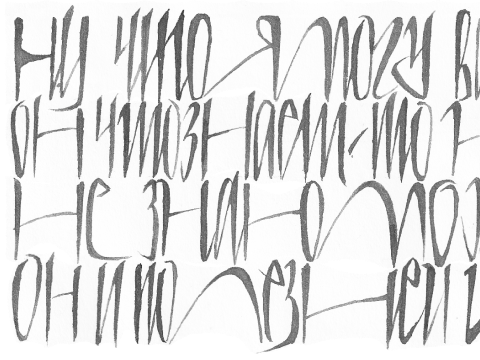 Ну что Я могу
он что знает-то
Не знаю
он и полезней